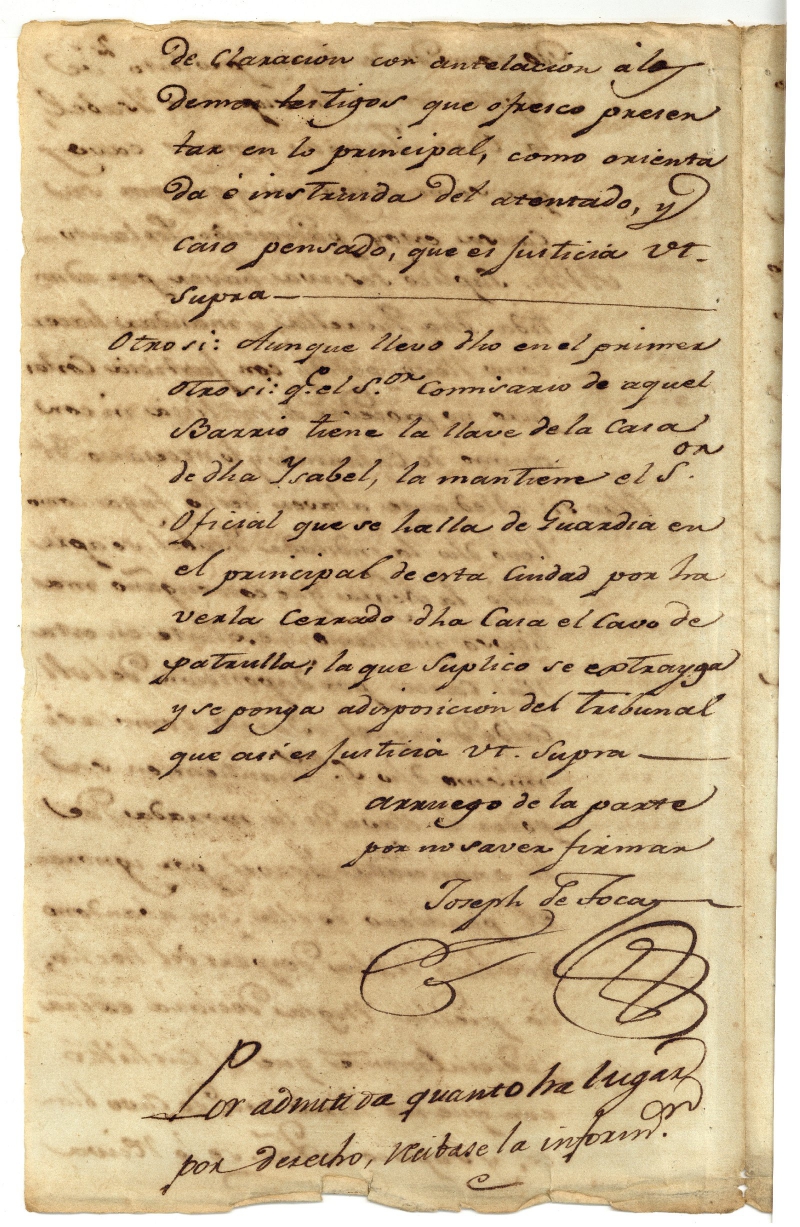 de claracion con antelación álos
demas testigos que ofresco presen
tar en lo principal, como orienta
da é instruida del atentado, y
caso pensado, que es Justicia Vt.
supra
Otro si: Aunque llevo dho en el primer
otro si: qe. el S.or Comisario de aquel
Barrio tiene la llave de la Casa
de dha Ysabel, la mantiene el S.or
Oficial que se halla de Guardia en
el principal de esta Ciudad por ha
verla cerrado dha Casa el Cavo de
patrulla; la que suplico se extrayga
y se ponga adisposicion del Tribunal
que asi es Justicia Vt. supra
arruego de la parte
por no saver firmar
Joseph de Tocas
Por admitida quanto ha lugar
por derecho, recibase la inform.n